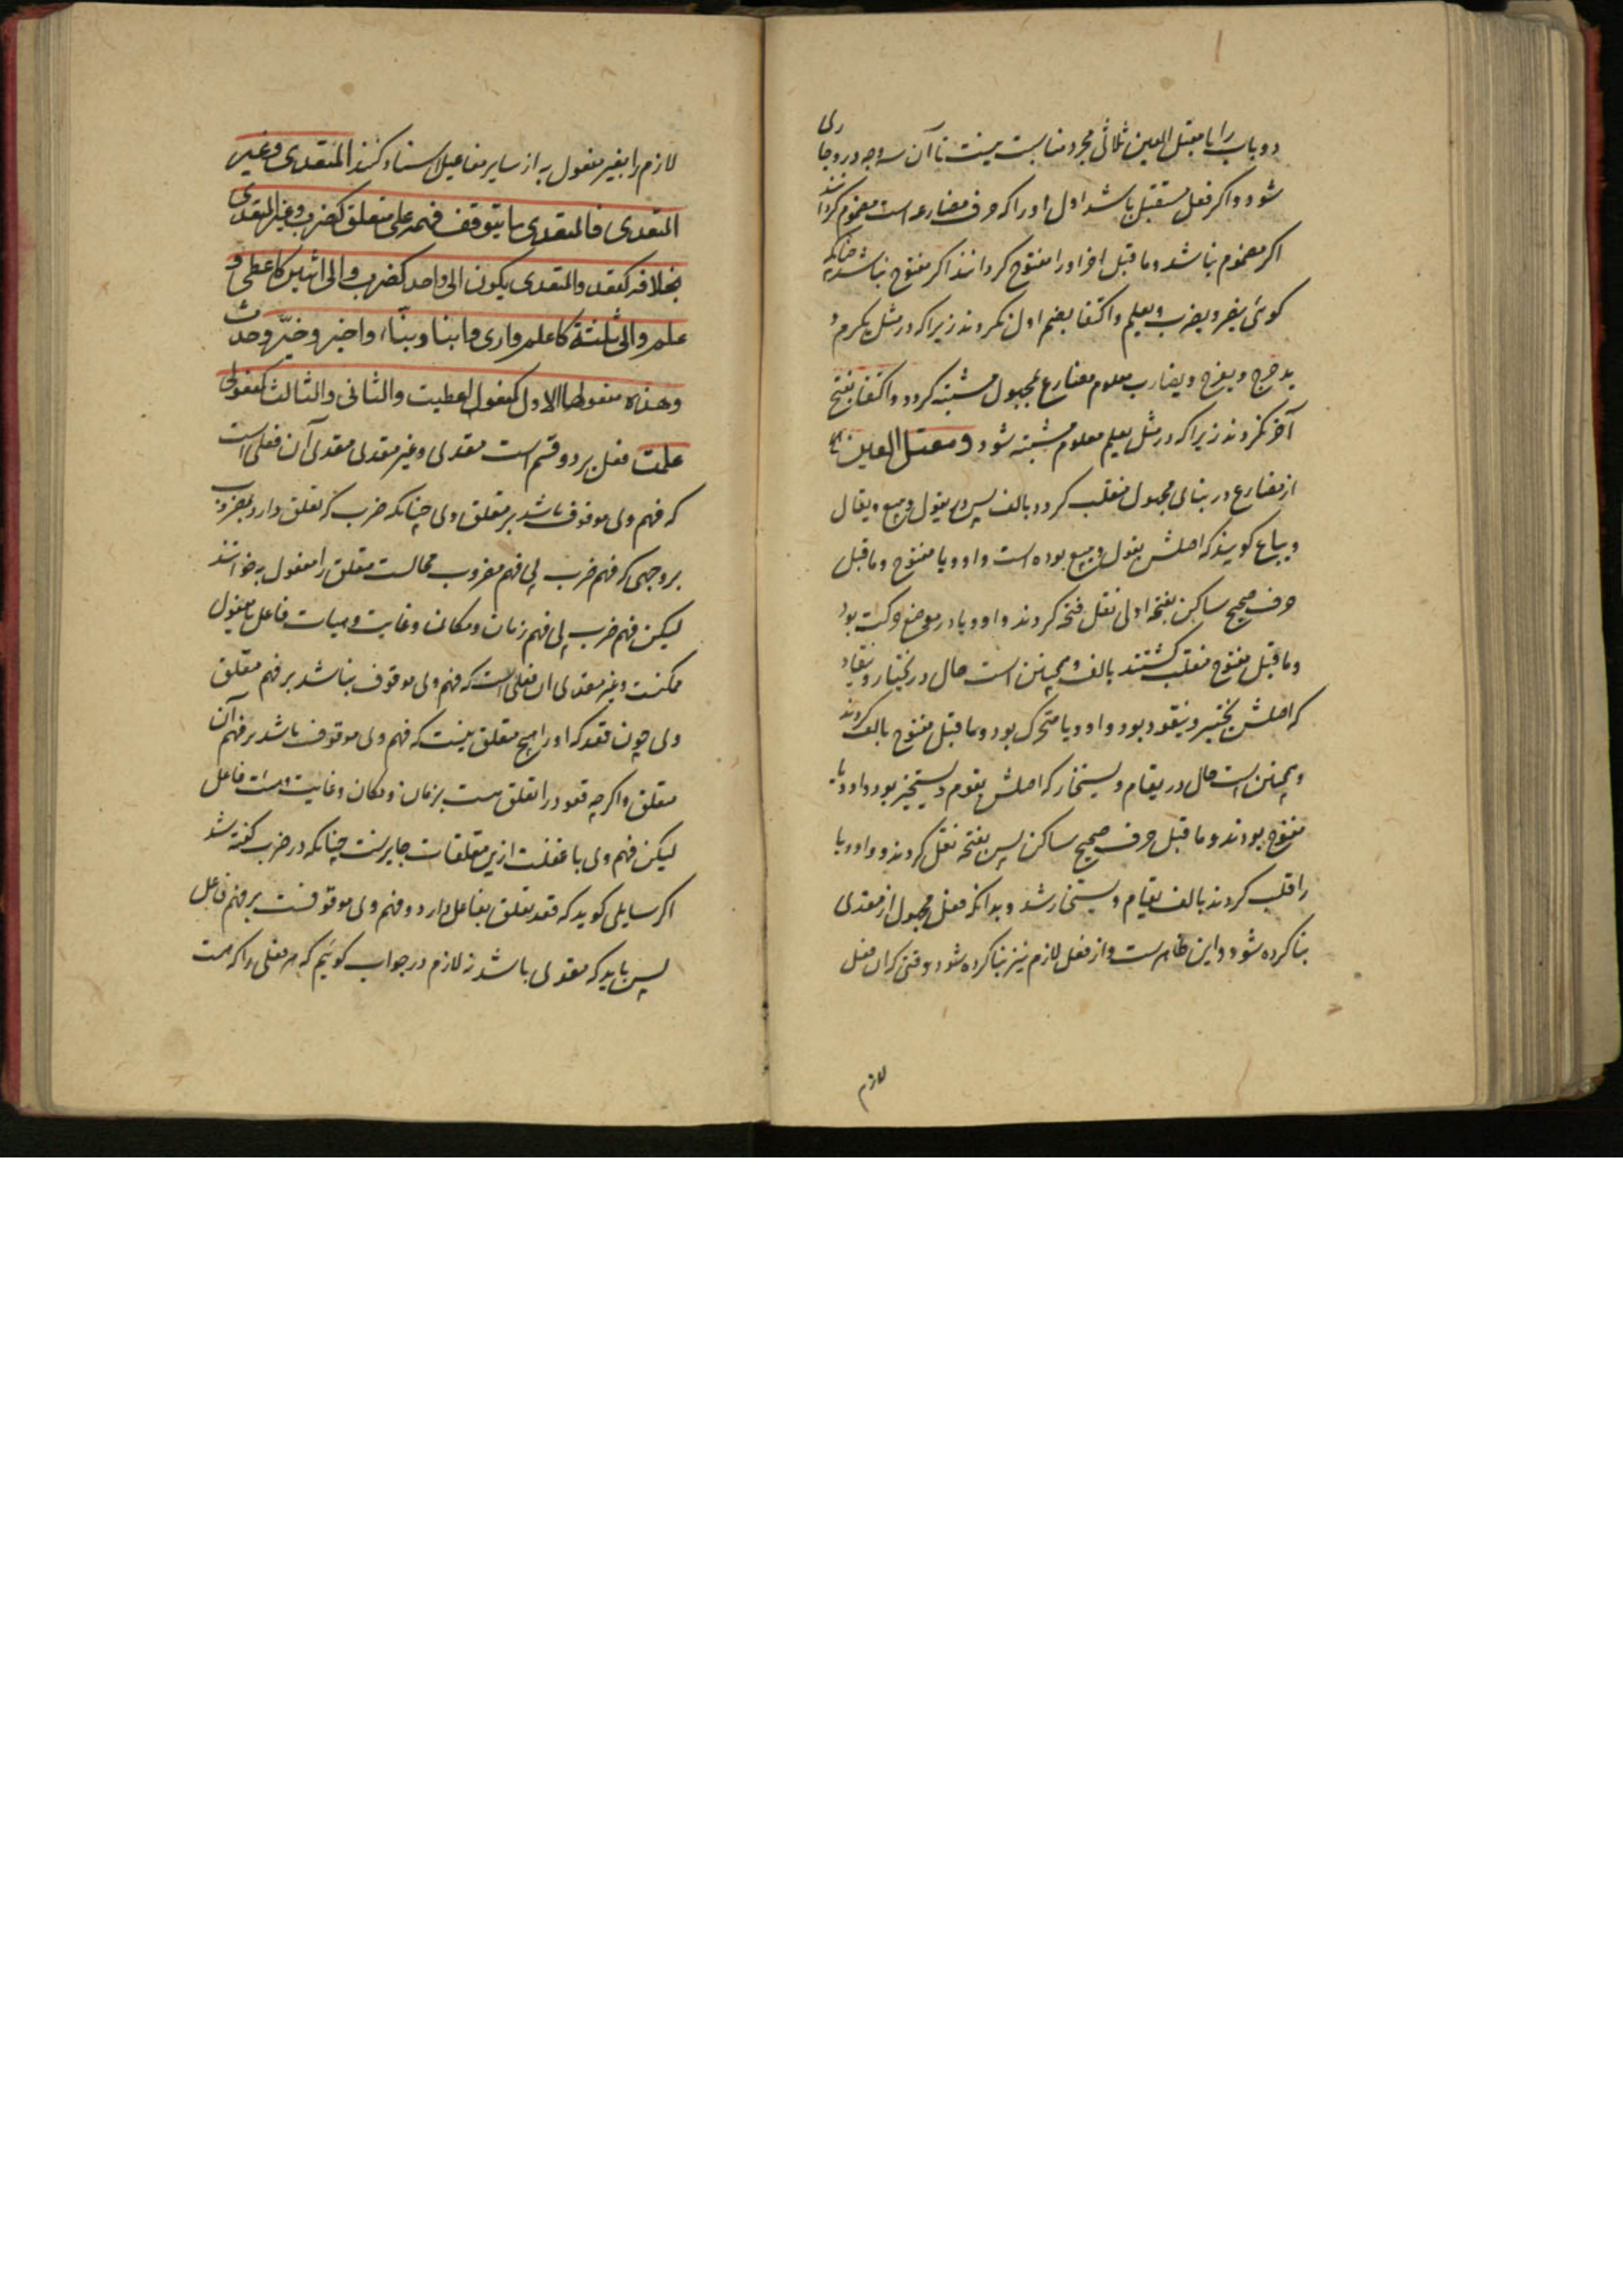 دو باب را با معتل العین ثلاثی مجرد مناسبت نیست تا آن سه وجه درو جاری
شود و اکر فعل مستقبل باشد اول او را که حرف مضارعه است مضموم کردانند
اکر مضموم نباشد و ما قبل اخر او را مفتوح کردانند اکر مفتوح نباشد چنانکه
کوئی ینصر و یضرب و یعلم و اکتفا بضم اول نکردند زیرا که در مثل یکرم و
یدحرج و یفرح و یضارب معلوم مضارع بمجهول مشتبه کردد و اکتفا بفتح
آخر نکردند زیرا که در مثل یعلم معلوم مشتبه شود و معتل العین
از مضارع در بنای مجهول منقلب کردد بالف پس در یقول و یبیع و یقال
و یباع کویند که اصلش یقول و یبیع بوده است واو و یا مفتوح و ما قبل
حرف صحیح ساکن بفتحه اولی نقل فتحه کردند واو و یا در موضع حرکت بود
و ما قبل مفتوح منقلب کشتند بالف و همچنین است حال در یختار و ینقاد
که اصلش یختیر و ینقود بود واو و یا متحرک بود و ما قبل مفتوح بالف کردند
و همچنین است حال در یقام و یستخار که اصلش یقوم و یستخیر بود واو و یا
مفتوح بودند و ما قبل حرف صحیح ساکن پس فتحه نقل کردند و واو و یا
را قلب کردند بالف یقام و یستخار شد و بدانکه فعل مجهول از متعدی
بنا کرده شود و این ظاهرست و از فعل لازم نیز بنا کرده شود وقتی که ان فعل
لازم
لازم را بغیر مفعول به از سایر مفاعیل اسناد کنند المتعدی وغیر
المتعدی فالمتعدی ما یتوقف فهمه علی متعلق کضرب وغیر المتعدی
بخلافه کقعد والمتعدی یکون الی واحد کضرب والی اثنین کاعطی و
علم والی ثلثة کاعلم واری وانبأ ونبّأ واخبر وخبّر وحدث
وهذه مفعولها الاول کمفعول اعطیت والثانی والثالث کمفعولی
علمت فعل بر دو قسم است متعدی و غیر متعدی متعدی آن فعلی است
که فهم وی موقوف باشد بر متعلق وی چنانکه ضرب که تعلق دارد بمضروب
بر وجهی که فهم ضرب بی فهم مضروب محالست متعلق را مفعول به خوانند
لیکن فهم ضرب بی فهم زمان و مکان و غایت و هیات فاعل یا مفعول
ممکنست و غیر متعدی ان فعلی است که فهم وی موقوف نباشد بر فهم متعلق
وی چون قعد که او را هیچ متعلق نیست که فهم وی موقوف باشد بر فهم آن
متعلق و اکرچه قعود را تعلق هست بزمان و مکان و غایت و هیات فاعل
لیکن فهم وی با غفلت ازین متعلقات جایزست چنانکه در ضرب کفته شد
اکر سایلی کوید که قعد تعلق بفاعل دارد و فهم وی موقوفست بر فهم فاعل
پس باید که متعدی باشد نه لازم در جواب کوئیم که هر فعلی را که هست